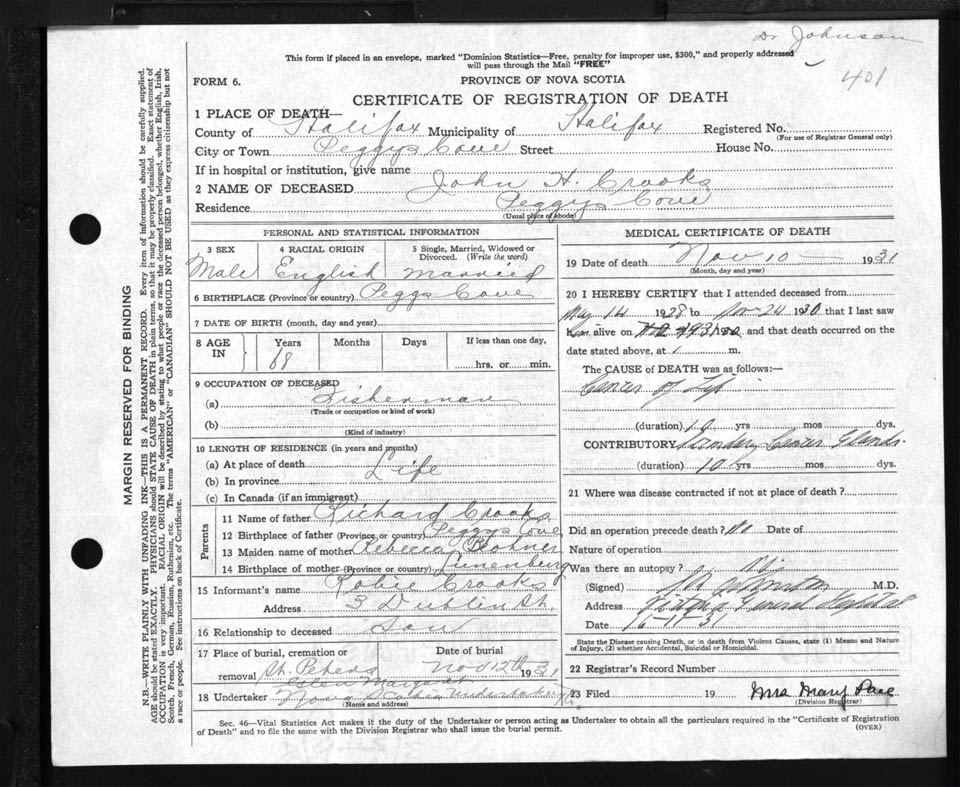 Dr Johnson
401
This form if placed in an envelope, marked "Dominion Statistics—Free, penalty for improper use, $300," and properly addressed
will pass through the Mail "FREE"
FORM 6.
PROVINCE OF NOVA SCOTIA
CERTIFICATE OF REGISTRATION OF DEATH
1 PLACE OF DEATH—
County of Halifax Municipality of Halifax Registered No.
(For use of Registrar General only)
City or Town Peggys Cove Street House No.
If in hospital or institution, give name
2 NAME OF DECEASED John H. Crooks
Residence Peggys Cove
(Usual place of abode)
PERSONAL AND STATISTICAL INFORMATION
3 SEX 4 RACIAL ORIGIN 5 Single, Married, Widowed or
Divorced. (Write the word)
Male English married
6 BIRTHPLACE (Province or country) Peggs Cove
7 DATE OF BIRTH (month, day and year)
8 AGE IN Years Months Days If less than one day,
68 hrs. or min.
9 OCCUPATION OF DECEASED
(a) Fisherman
(Trade or occupation or kind of work)
(b)
(Kind of industry)
10 LENGTH OF RESIDENCE (in years and months)
(a) At place of death Life
(b) In province
(c) In Canada (if an immigrant)
Parents
11 Name of father Richard Crooks
12 Birthplace of father (Province or country) Peggys Cove
13 Maiden name of mother Rebecca
14 Birthplace of mother (Province or country) Lunenburg
15 Informant's name Robie Crooks
Address 3 Dublin St.
16 Relationship to deceased Son
17 Place of burial, cremation or Date of burial
removal St. Peters Nov 12th 1931
Glen Margaret
18 Undertaker Nova Scotia Undertaker
(Name and address)
MEDICAL CERTIFICATE OF DEATH
19 Date of death Nov 10 — 1931
(Month, day and year)
20 I HEREBY CERTIFY that I attended deceased from
May 14 1928 to 24 1930 that I last saw
him alive on and that death occurred on the
date stated above, at 1 m.
The CAUSE of DEATH was as follows:—
Cancer of Lip
(duration) yrs mos dys.
CONTRIBUTORY Secondary Cancer Glands.
(duration) 10 yrs mos dys.
21 Where was disease contracted if not at place of death?
Did an operation precede death? No Date of
Nature of operation
Was there an autopsy? No
(Signed) M.D.
Address Victoria General Hospital
Date 16-11-31
State the Disease causing Death, or in death from Violent Causes, state (1) Means and Nature
of Injury, (2) whether Accidental, Suicidal or Homicidal.
22 Registrar's Record Number
23 Filed 19 Mrs Mary
(Division Registrar)
Sec. 46—Vital Statistics Act makes it the duty of the Undertaker or person acting as Undertaker to obtain all the particulars required in the "Certificate of Registration
of Death" and to file the same with the Division Registrar who shall issue the burial permit.
(OVER)
MARGIN RESERVED FOR BINDING
N.B.—WRITE PLAINLY WITH UNFADING INK—THIS IS A PERMANENT RECORD. Every item of information should be carefully supplied.
AGE should be stated EXACTLY. PHYSICIANS should STATE CAUSE OF DEATH in plain terms, so that it may be properly classified. Exact statement of
OCCUPATION is very important. RACIAL ORIGIN will be described by stating to what people or race the deceased person belonged, whether English, Irish,
Scotch, French, German, Russian, Ruthenian, etc. The terms "AMERICAN" or "CANADIAN" SHOULD NOT BE USED as they express citizenship but not
a race or people. See instructions on back of Certificate.